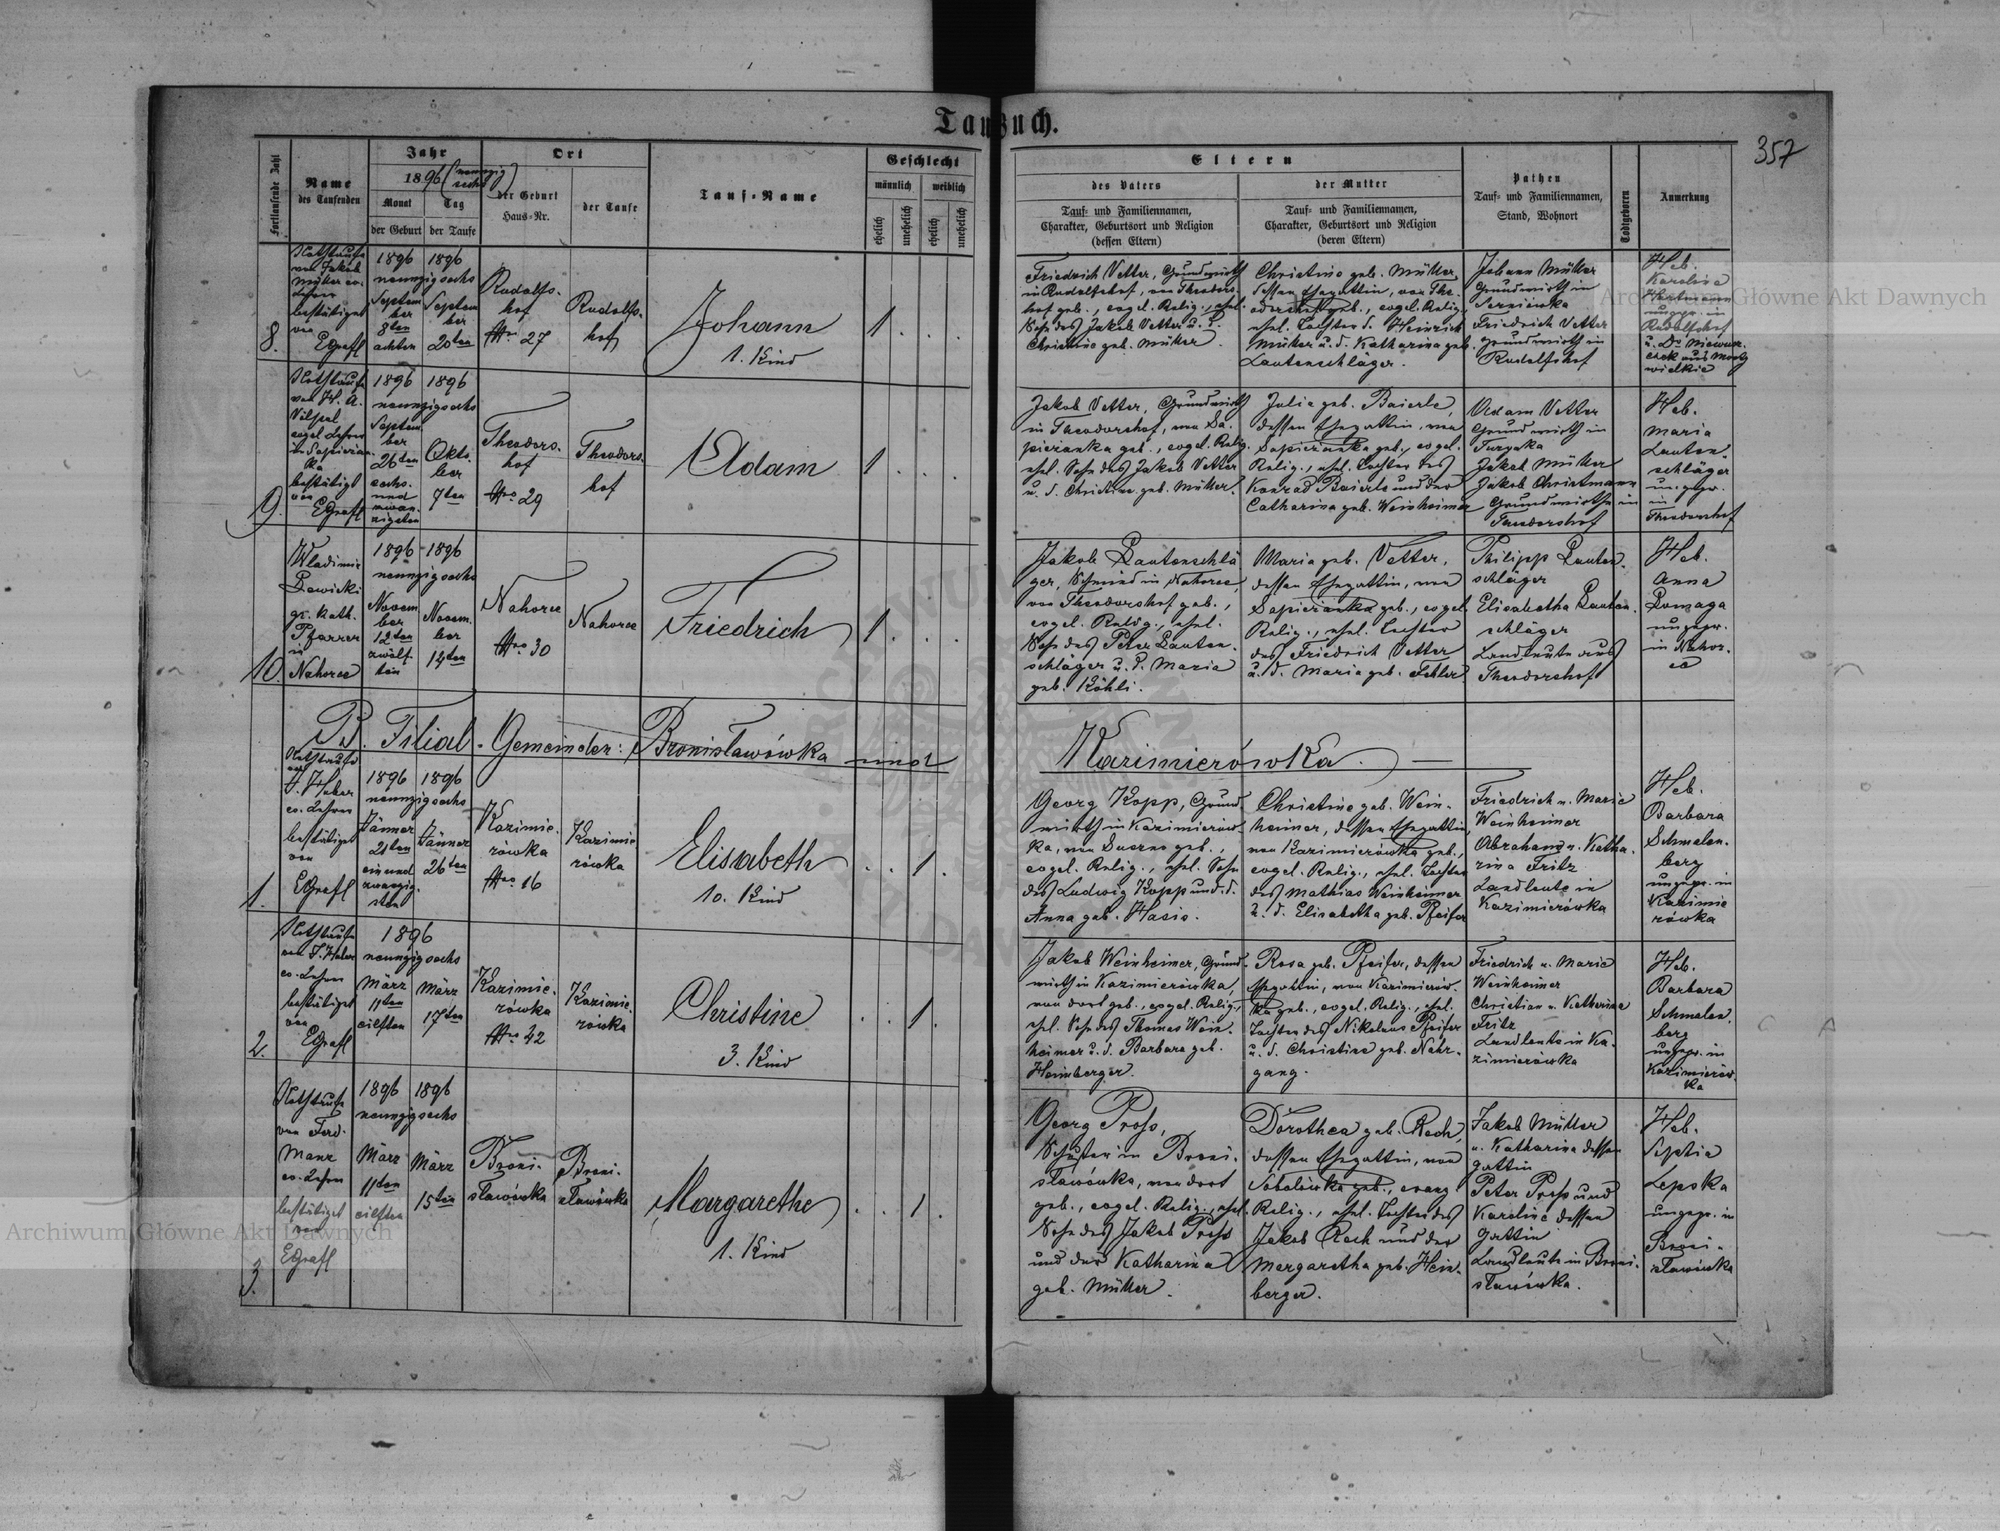 Taufbuch.
357
Fortlaufende Zahl
Name
des Taufenden
Jahr
1896 (neunzig
sechs)
Monat
Tag
der Geburt
der Taufe
Ort
der Geburt
Haus-Nr.
der Taufe
Tauf-Name
Geschlecht
männlich
weiblich
ehelich
unehelich
ehelich
unehelich
Eltern
des Vaters
Tauf- und Familiennamen,
Charakter, Geburtsort und Religion
(dessen Eltern)
der Mutter
Tauf- und Familiennamen,
Charakter, Geburtsort und Religion
(deren Eltern)
Pathen
Tauf- und Familiennamen,
Stand, Wohnort
Todtgeboren
Anmerkung
8.
Nothtaufe
von Jakob
Müller ev.
Lehrer
bestätiget
von
1896
neunzigsechs
Septem
ber
8ten
achten
1896
Septem
ber
20ten
Rudolfs-
hof
Nro 27
Rudolfs-
hof
Johann
1. Kind
1
Friedrich Vetter, Grundwirth
in Rudolfshof, von Theodors-
hof geb., evgel. Relig., ehel.
Sohn des Jakob Vetter u. d.
Christine geb. Müller.
Christine geb. Müller,
dessen Ehegattin, von The-
odorshof geb., evgel. Relig.,
ehel. Tochter d. Heinrich
Müller u. d. Katharina geb.
Lautenschläger.
Johann Müller
Grundwirth in
Friedrich Vetter
Grundwirth in
Rudolfshof
Heb.
Karoline
ungepr. in
Rudolfshof
9.
Nothtaufe
von H. A.
evgel. Lehrer
in Sapieran-
ka
bestätigt
von
1896
neunzigsechs
Septem
ber
26ten
sechs-
und
zwan-
zigsten
1896
Okto-
ber
7ten
Theodors-
hof
Nro 29
Theodors-
hof
Adam
1
Jakob Vetter, Grundwirth
in Theodorshof, von Sa-
pieranka geb., evgel. Relig.
ehel. Sohn des Jakob Vetter
u. d. Christine geb. Müller.
Julie geb. Baierle,
dessen Ehegattin, von
Sapieranka geb., evgel.
Relig., ehel. Tochter des
Konrad Baierle und der
Catharina geb. Weinheimer
Adam Vetter
Grundwirth in
Jakob Müller
Jakob Christmann
Grundwirthe in
Theodorshof
Heb.
Maria
Lauten-
schläger
ungepr.
in
Theodorshof
10.
Wladimir
Lewicki
gr. kath.
Pfarrer
in
Nahorce
1896
neunzigsechs
Novem
ber
12ten
zwölf-
ten
1896
Novem-
ber
12ten
Nahorce
Nro 30
Nahorce
Friedrich
1
Jakob Lautenschlä
ger, Schmied in Nahorce,
von Theodorshof geb.,
evgel. Relig., ehel.
Sohn des Peter Lauten-
schläger u. d. Maria
geb. Köhli.
Maria geb. Vetter,
dessen Ehegattin, von
Sapieranka geb., evgel.
Relig., ehel. Tochter
des Friedrich Vetter
u. d. Maria geb. Fehler
Philipp Lauten-
schläger
Elisabetha Lauten-
schläger
Landleute aus
Theodorshof
Heb.
Anna
Pomaga
ungepr.
in Nahor-
ce
B. Filial-Gemeinden: Bronisławówka und Kazimierówka.
1.
Nothtaufe
von
J. Huber
ev. Lehrer
bestätiget
von
1896
neunzigsechs
Jänner
21ten
einund
zwanzig-
sten
1896
Jänner
26ten
Kazimie-
rówka
Nro 16
Kazimie
rówka
Elisabeth
10. Kind
1
Georg Kopp, Grund-
wirth in Kazimierów-
ka, von geb.,
evgel. Relig., ehel. Sohn
des Ludwig Kopp und d.
Anna geb. Hasis.
Christine geb. Wein-
heimer, dessen Ehegattin,
von Kazimierówka geb.,
evgel. Relig., ehel. Tochter
des Mathias Weinheimer
u. d. Elisabetha geb. Pfeifer
Friedrich u. Marie
Weinheimer
Abraham u. Katha-
rina Fritz
Landleute in
Kazimierówka
Heb.
Barbara
Schmalen-
berg
ungepr. in
Kazimie
rówka
2.
Nothtaufe
von J. Huber
ev. Lehrer
bestätiget
von
1896
neunzigsechs
März
11ten
eilften
März
17ten
Kazimie-
rówka
Nro 42
Kazimie-
rówka
Christine
3. Kind
1
Jakob Weinheimer, Grund-
wirth in Kazimierówka,
von dort geb., evgel. Relig.,
ehel. Sohn des Thomas Wein-
heimer u. d. Barbara geb.
Heimberger.
Rosa geb. Pfeifer, dessen
Ehegattin, von Kazimierów-
ka geb., evgel. Relig., ehel.
Tochter des Nikolaus Pfeifer
u. d. Christine geb. Nehr-
gang.
Friedrich u. Marie
Weinheimer
Christian u. Katherina
Fritz
Landleute in Ka-
zimierówka
Heb.
Barbara
Schmalen-
berg
ungepr. in
Kazimierów-
ka
3.
Nothtaufe
von Ferd.
Manz
ev. Lehrer
bestätiget
von
1896
neunzigsechs
März
11ten
eilften
1896
März
15ten
Broni-
sławówka
Broni-
sławówka
Margarethe
1. Kind
1
Georg Pross,
Schuster in Broni-
sławówka, von dort
geb., evgel. Relig., ehel.
Sohn des Jakob Pross
und der Katharina
geb. Müller.
Dorothea geb. Rech,
dessen Ehegattin, von
Sobolówka geb., evang
Relig., ehel. Tochter des
Jakob Rech und der
Margaretha geb. Hein-
berger.
Jakob Müller
u. Katharina dessen
Gattin
Peter Pross und
Karoline dessen
Gattin
Landleute in Broni-
sławówka.
Heb.
Lepska
ungepr. in
Broni-
sławówka
Archiwum Główne Akt Dawnych
Archiwum Główne Akt Dawnych